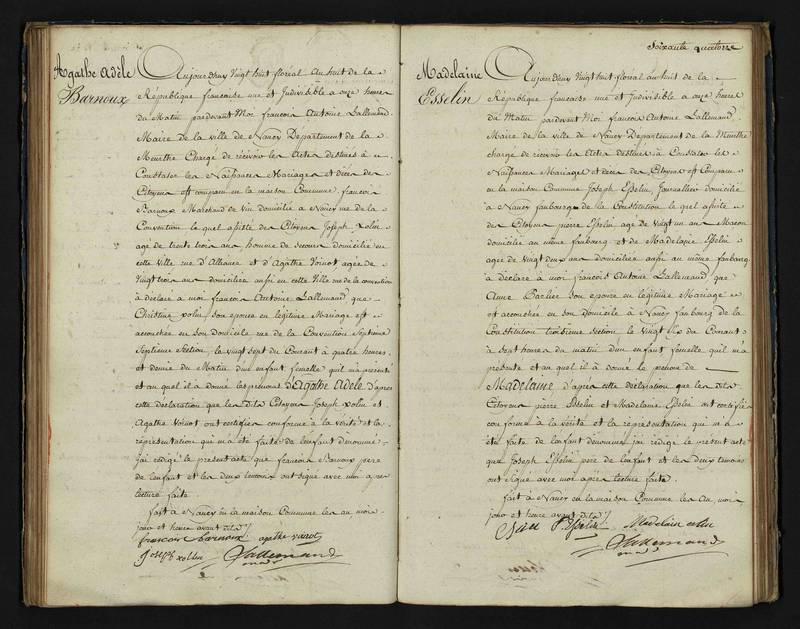 Agathe Adèle
Barnoux
Aujourdhuy Vingt huit floréal an huit de la
République francaise une et Indivisible a onze heures
du Matin pardevant Moi francois Antoine Lallemand
Maire de la ville de Nancy Departement de la
Meurthe Chargé de récevoir les Actes destinés à
Constater les Naissances Mariages et décès des
Citoyens est comparu en la maison Commune, francois
Barnoux Marchand de Vin domicilié a Nancy rue de la
Convention le quel assisté des Citoyens Joseph xolin
agé de trente trois ans homme de secours domicilié en
cette Ville rue d'Alliance et d'Agathe Voinot agée de
Vingt trois ans domiciliée aussi en cette Ville rue de la convention
à déclaré a moi francois Antoine Lallemand que
Christine xolin son epouse en légitime Mariage est
accouchée en son Domicile rue de la Convention Septieme
Septieme Section, le vingt sept du Courant à quatre heures
et demie du Matin d'un enfant femelle qu'il m'a présenté
et au quel il a donné les prenoms d'Agathe Adèle, d'après
cette déclaration que les dits Citoyens Joseph xolin et
Agathe Voinot ont certifiée conforme à la vérité et la
réprésentation qui m'a été faite de l'enfant dénommé
J'ai rédigé le présent acte que francois Barnoux pere
de l'enfant et les deux temoins ont signé avec moi apres
lecture faite.
fait à Nancy en la maison Commune les an mois
jour et heure avant dits
francois Barnoux agathe voinot
Joseph xollin Lallemand
Soixante quatorze
Madelaine
Esselin
Aujourdhuy Vingt huit floréal an huit de la
République francaise une et Indivisible a onze heures
du Matin pardevant Moi francois Antoine Lallemand
Maire de la ville de Nancy Departement de la Meurthe
chargé de récevoir les Actes destinés à Constater les
Naissances Mariages et décès des Citoyens est Comparu
en la maison Commune Joseph Esselin, Journallier domicilié
à Nancy faubourg de la Constitution le quel assisté
des Citoyens pierre Esselin agé de Vingt un ans Macon
domicilié au même faubourg et de Madelaine Esselin
agée de vingt deux ans domiciliée aussi au même faubourg
à déclaré à moi francois Antoine Lallemand que
Anne Barlier son epouse en légitime Mariage
est accouchée en son domicile à Nancy faubourg de la
Constitution troisieme section, le vingt six du Courant
à sept heures du matin d'un enfant femelle qu'il m'a
présenté et au quel il à donné le prenom de
Madelaine, d'après cette déclaration que les dits
Citoyens pierre Esselin et Madelaine Esselin ont certifiée
conforme à la vérité et la réprésentation qui m'a
été faite de l'enfant dénommé j'ai rédigé le présent acte
que Joseph Esselin pere de l'enfant et les deux temoins
ont signé avec moi après lecture faite.
fait à Nancy en la maison Commune les an mois
jour et heure avant dits
Madelain
Lallemand